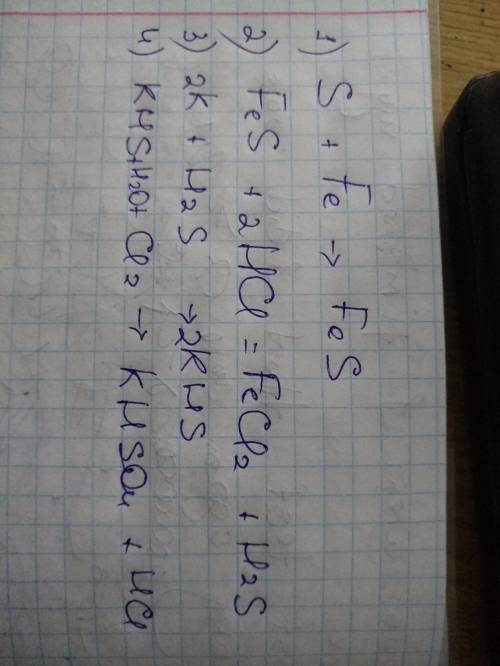 1) S + Fe → FeS
2) FeS + 2HCl = FeCl₂ + H₂S
3) 2K + H₂S → 2KHS
4) KHS+H₂O+ Cl₂ → KHSO₄ + HCl